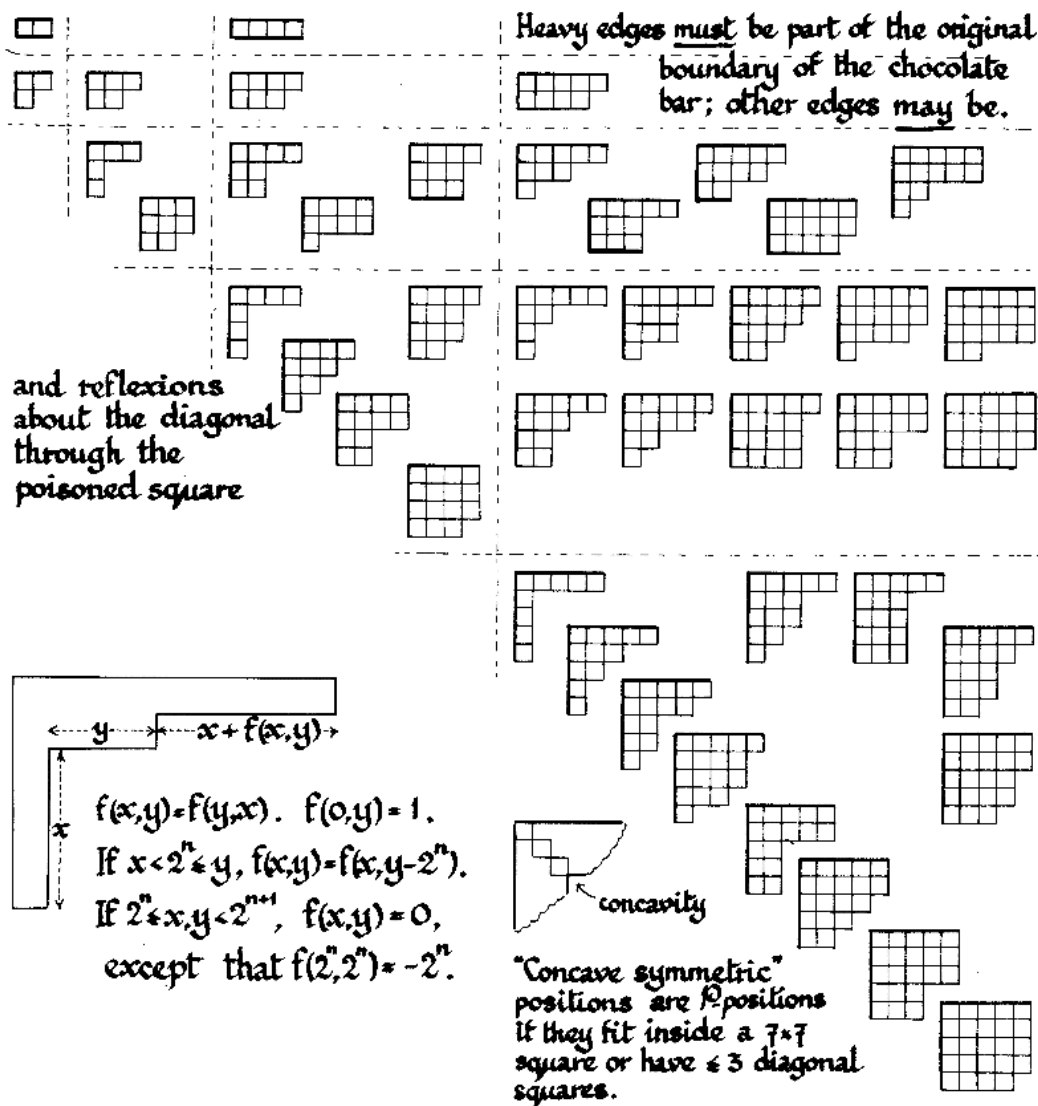 Heavy edges must be part of the original
boundary of the chocolate
bar; other edges may be.
and reflexions
about the diagonal
through the
poisoned square
y
x + f(x,y)
x
f(x,y)=f(y,x). f(0,y)=1.
If x<2ⁿ≤y, f(x,y)=f(x,y-2ⁿ).
If 2ⁿ≤x,y<2ⁿ⁺¹, f(x,y)=0,
except that f(2ⁿ,2ⁿ)=-2ⁿ.
concavity
"Concave symmetric"
positions are P-positions
if they fit inside a 7×7
square or have ≤ 3 diagonal
squares.